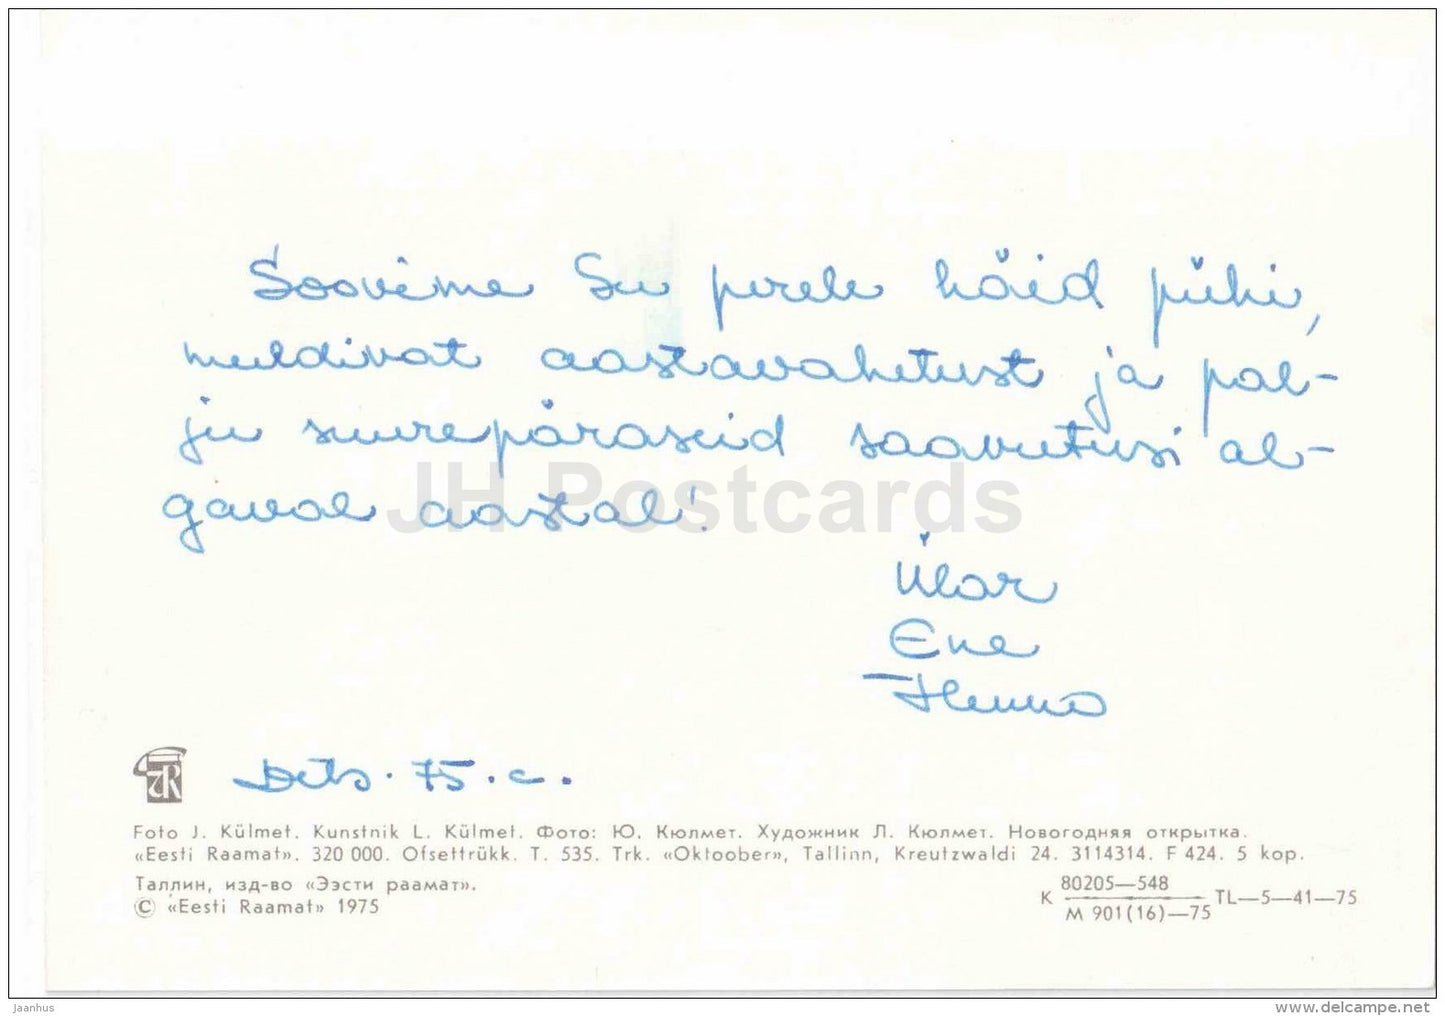 Soovime Su perele häid pühi,
meeldivat aastavahetust ja pal-
ju suurepäraseid saavutusi al-
gaval aastal!
JH Postcards
Ülar
Ene
Henno
Dets. 75.a.
Foto J. Külmet. Kunstnik L. Külmet. Фото: Ю. Кюлмет. Художник Л. Кюлмет. Новогодняя открытка.
«Eesti Raamat». 320 000. Ofsettrükk. T. 535. Trk. «Oktoober», Tallinn, Kreutzwaldi 24. 3114314. F 424. 5 kop.
Таллин, изд-во «Ээсти раамат».
© «Eesti Raamat» 1975
К 80205—548 TL—5—41—75
М 901(16)—75
jaanhus
www.delcampe.net